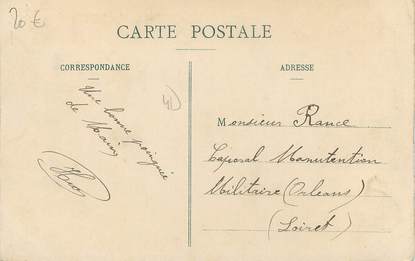 20 €
CARTE POSTALE
CORRESPONDANCE
ADRESSE
Une bonne poignée
de Main
Monsieur Rance
Caporal Manutention
Militaire (Orléans)
(Loiret)